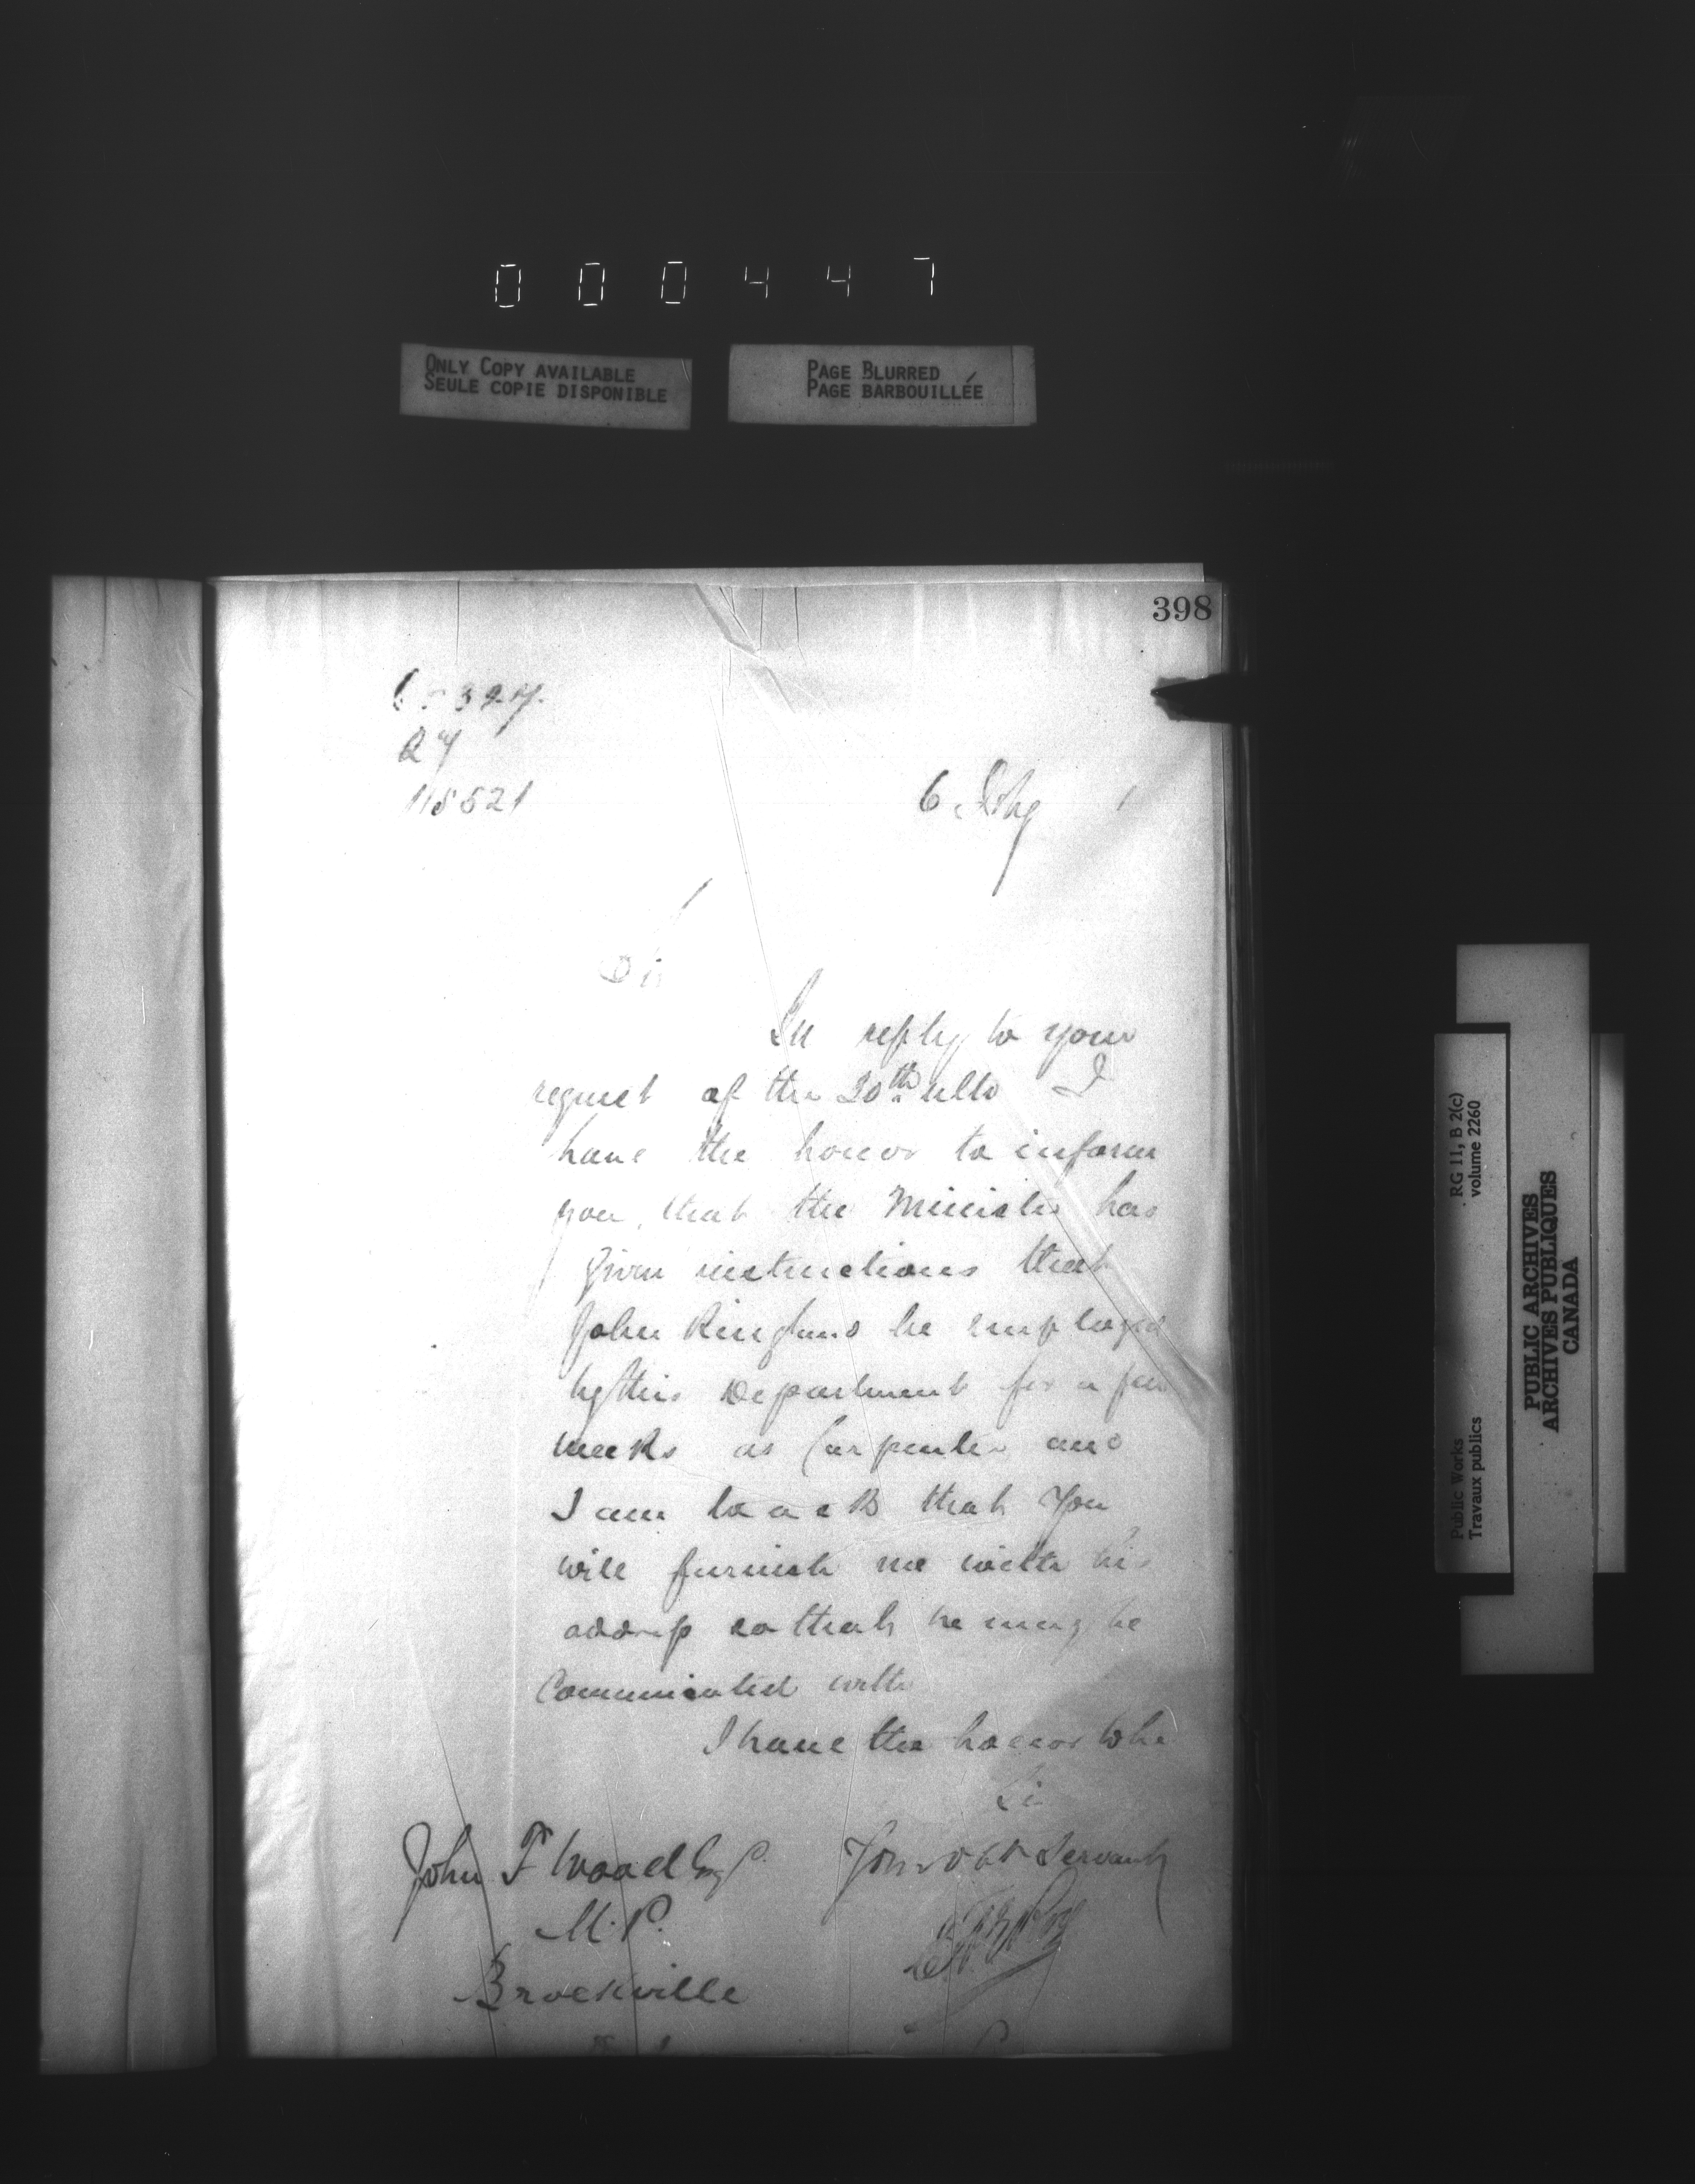 000447
ONLY COPY AVAILABLE
SEULE COPIE DISPONIBLE
PAGE BLURRED
PAGE BARBOUILLÉE
398
115521
6
Sir
In reply to your
request of the 20th ulto I
have the honor to inform
you, that the Minister has
given instructions that
John be employed
by this Department for a few
weeks as Carpenter and
I am to ask that you
will furnish me with his
address so that he may be
Communicated with
I have the honor to be
Sir
Your obt Servant
John F Wood Esq
M.P.
Brockville
RG 11, B 2(c)
volume 2260
Public Works
Travaux publics
PUBLIC ARCHIVES
ARCHIVES PUBLIQUES
CANADA